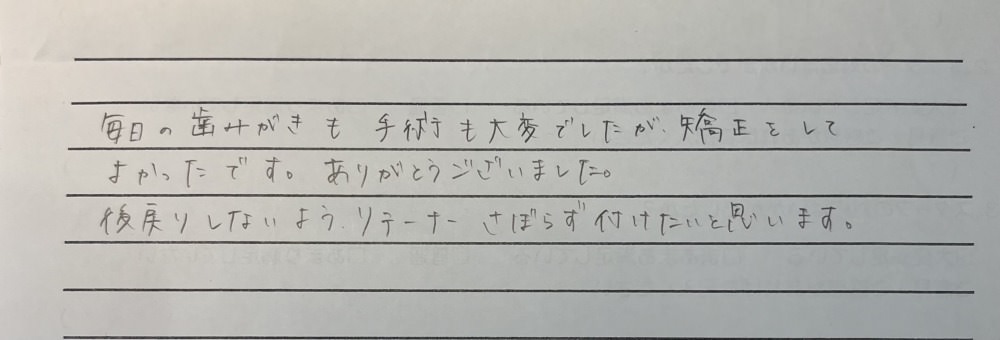 毎日の歯みがきも 手術も大変でしたが、矯正をして
よかったです。ありがとうございました。
後戻りしないよう、リテーナー さぼらず付けたいと思います。